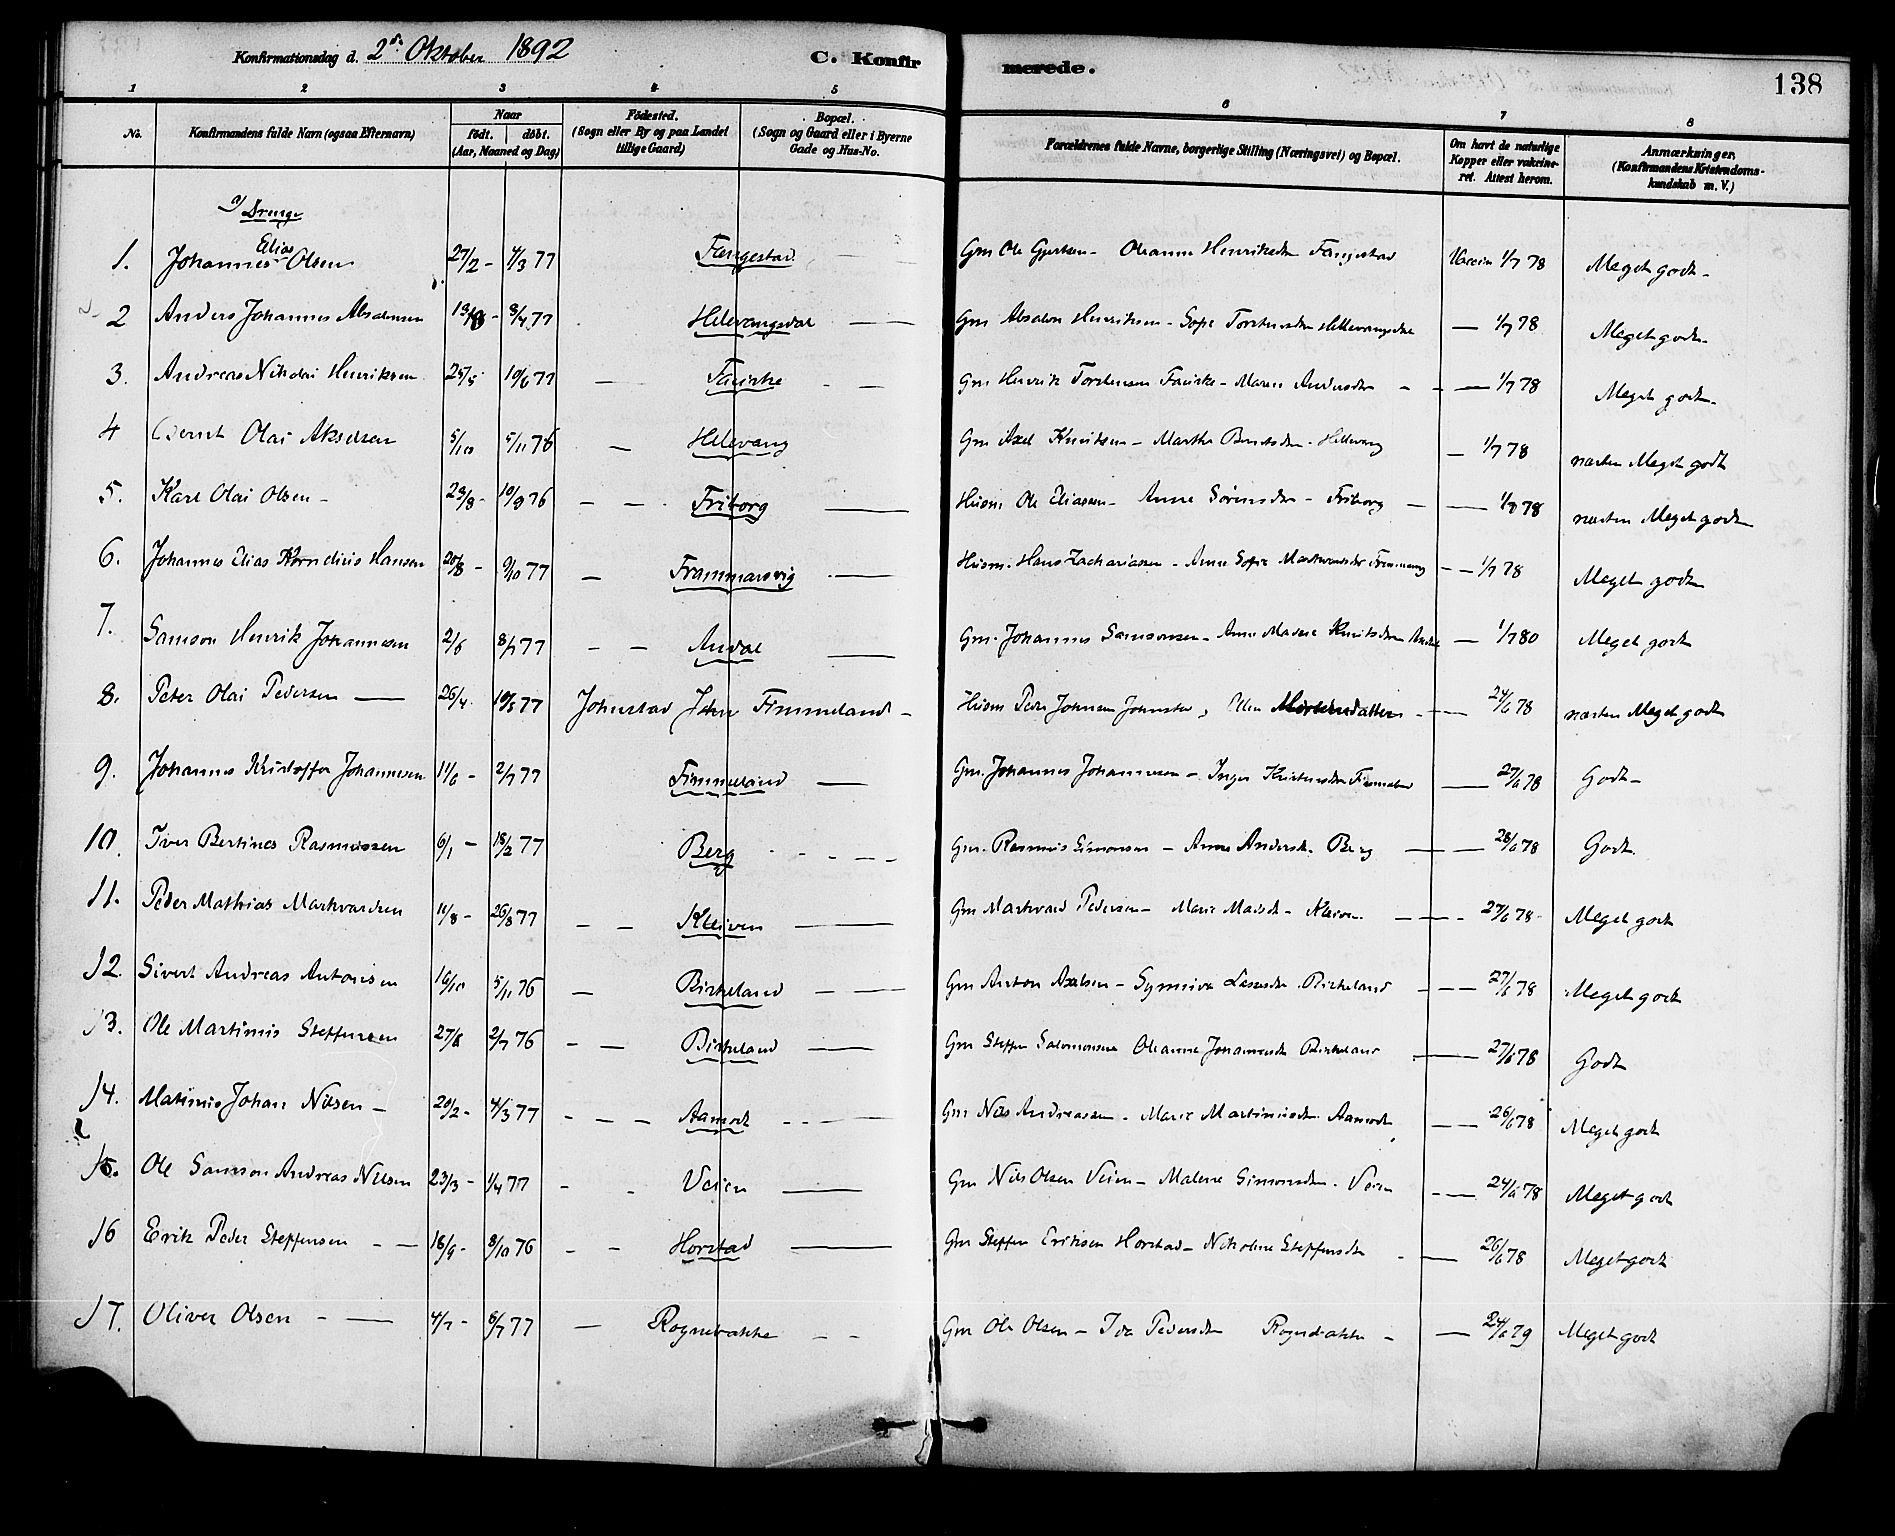 Konfirmationsdag d. 2den Oktober 1892 C. Konfirmerede. 138
1 2 3 4 5 6 7 8
No. Konfirmandens fulde Navn (ogsaa Efternavn) Naar født. døbt. (Aar, Maaned og Dag) Fødested. (Sogn eller By og paa Landet tillige Gaard) Bopæl. (Sogn og Gaard eller i Byerne Gade og Hus-No. Forældrenes fulde Navne, borgerlige Stilling (Næringsvei) og Bopæl. Om havt de naturlige Kopper eller vakcineret. Attest herom. Anmærkninger. (Konfirmandens Kristendomskundskab m. V.)
a) Drenge
1. Johannes Elias Olsen 27/2 - 4/3 77 Fangestad — Gm Ole Gjertsen - Oleanne Henriksdtr Fangestad Vaccin 1/7 78 Meget godt -
2 Anders Johannes Absalonsen 8/4 77 Hellevangsdal — Gm Absalon Henriksen - Sofie Torstensdtr Hellevangsdal — 1/7 78 Meget godt -
3. Andreas Nikolai Henriksen 25/5 10/6 77 — Fauske - — Gm Henrik Torstensen Fauske - Maren Andersdtr - - — 1/7 78 Meget godt -
4 Bernt Olai Akselsen 5/10 5/11 76 — Hellevang Gm Axel Knutsen - Marthe Berntsdtr - Hellevang — 1/7 78 næsten Meget godt
5. Karl Olai Olsen - 10/9 76 - — Friborg — Husm Ole Eliassen - Anne Sørensdtr - Friborg - — 1/7 78 næsten Meget godt
6. Johannes Elias Kornelius Hansen 20/8 - 9/10 77 — Frammarsvig — Husm. Hans Zachariassen - Anne Sofie - — 1/7 78 Meget godt
7. Samson Henrik Johannesen 2/6 8/7 77 - — Andal — Gm. Johannes Samsonsen - Anne Knutsdtr Andal — 1/7 80 Meget godt
8. Peter Olai Pedersen — 26/4 77 Johnstad Fimmeland - Husm Peder Johnsen Johnstad, Mortensdatter - — 24/6 78 næsten Meget godt
9. Johannes Kristoffer Johannesen 11/6 - 2/7 77 Fimmeland — Gm. Johannes Johannesen - Inger Fimmeland — 27/6 78 Godt -
10. Iver Bertines Rasmussen 6/1 - 18/2 77 Berg - - — Gm. Rasmus Simonsen - Anne Andersd. Berg — 28/6 78 Godt.
11. Peder Mathias Markvardsen 11/8 - 26/8 77 - — Kleiven — Gm Markvard Pedersen - Marie - Kleiven — 27/6 78 - Meget godt
12. Sivert Andreas Antonsen 16/10 5/11 76 — Birkeland — Gm Anton Axelsen - Synniva Lassesdtr Birkeland - — 27/6 78 Meget godt
13. Ole Martinus Steffensen 2/7 76 - — Birkeland — Gm Steffen Salomonsen Oleanne Johannesdtr Birkeland — 27/6 78 Godt
14. Matinus Johan Nilsen - 20/2 - 4/3 77 - - — Aamodt - — Gm Nils Andreassen - Marie Martinusdtr. Aamodt — 26/6 78 Meget godt
15. Ole Samson Andreas Nilsen 23/3 - 1/4 77 - - Veien — Gm Nils Olsen Veien - Malene Simonsdtr. Veien - — 24/6 78 Meget godt
16 Erik Peder Steffensen - — 18/9 - 8/10 76 - - Horstad — Gm Steffen Eriksen Horstad - Nikoline Steffensdtr - — 26/6 78 Meget godt
17. Oliver Olsen - — 4/7 - 8/7 77 — Rognebakke - - Gm Ole Olsen - Ida Pedersdtr Rognebakke - — 24/6 79 Meget godt